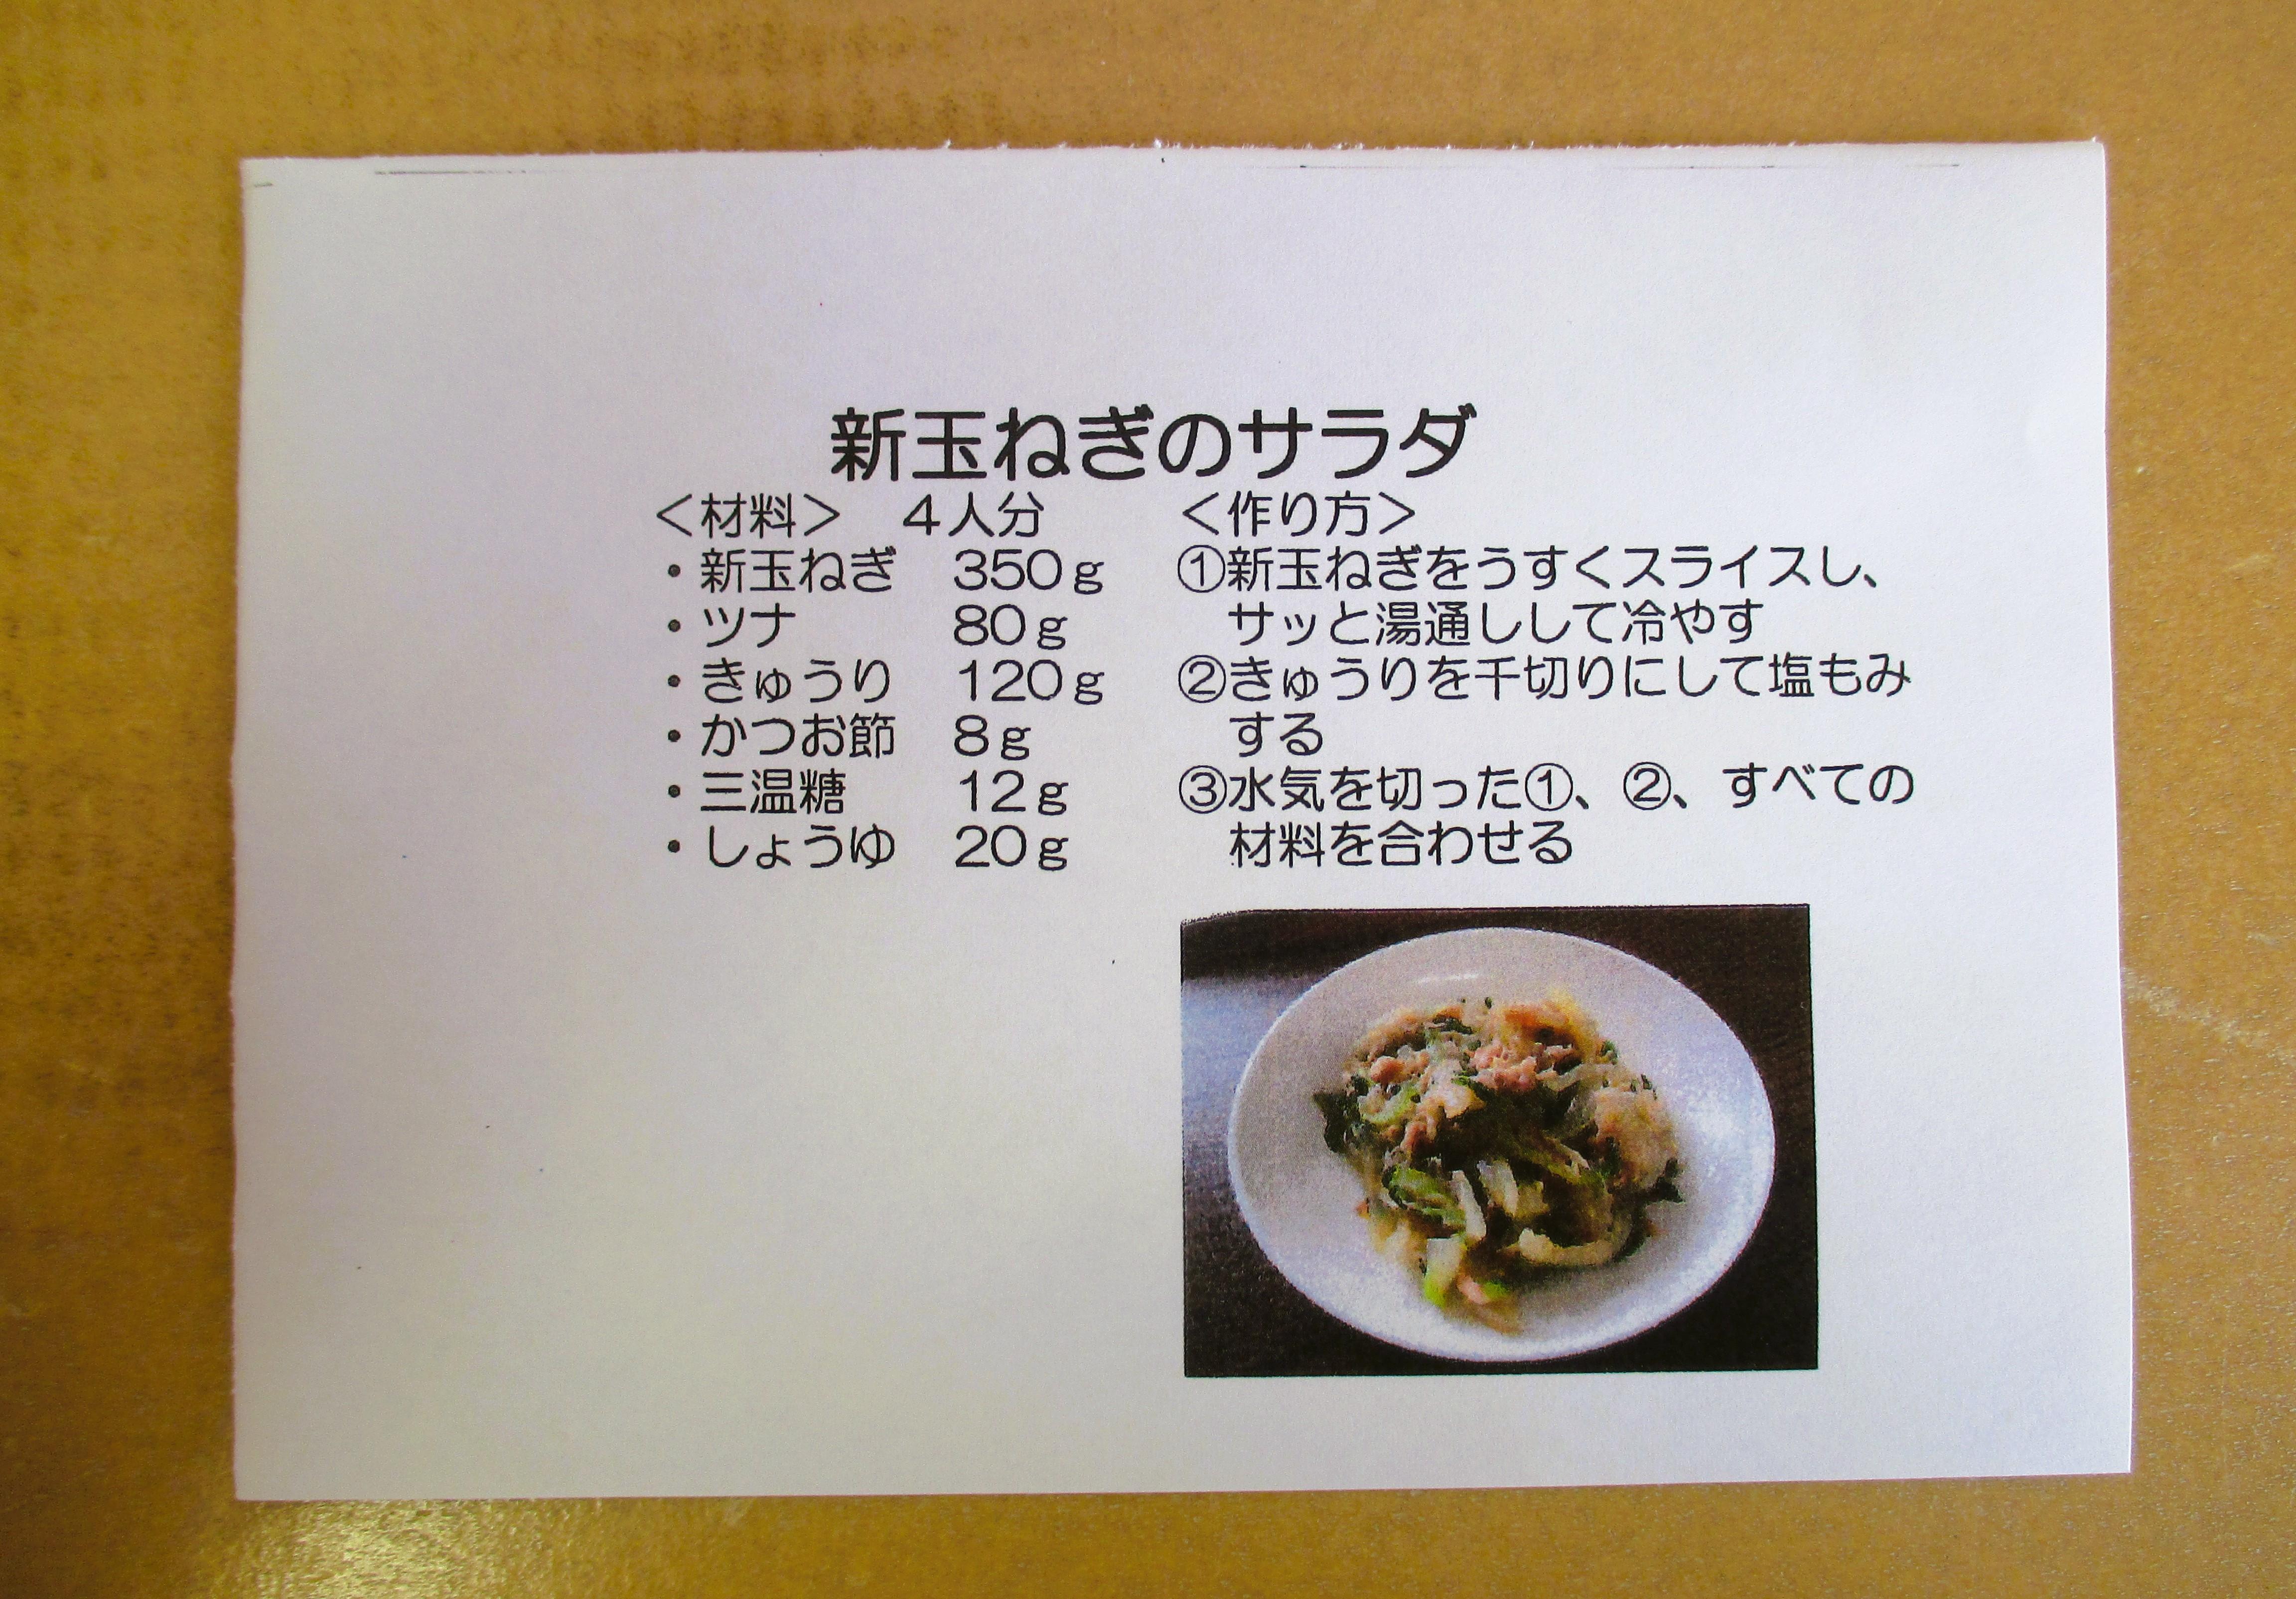 新玉ねぎのサラダ
＜材料＞　４人分
・新玉ねぎ　350ｇ
・ツナ　80ｇ
・きゅうり　120ｇ
・かつお節　8ｇ
・三温糖　12ｇ
・しょうゆ　20ｇ
＜作り方＞
①新玉ねぎをうすくスライスし、
サッと湯通しして冷やす
②きゅうりを千切りにして塩もみ
する
③水気を切った①、②、すべての
材料を合わせる